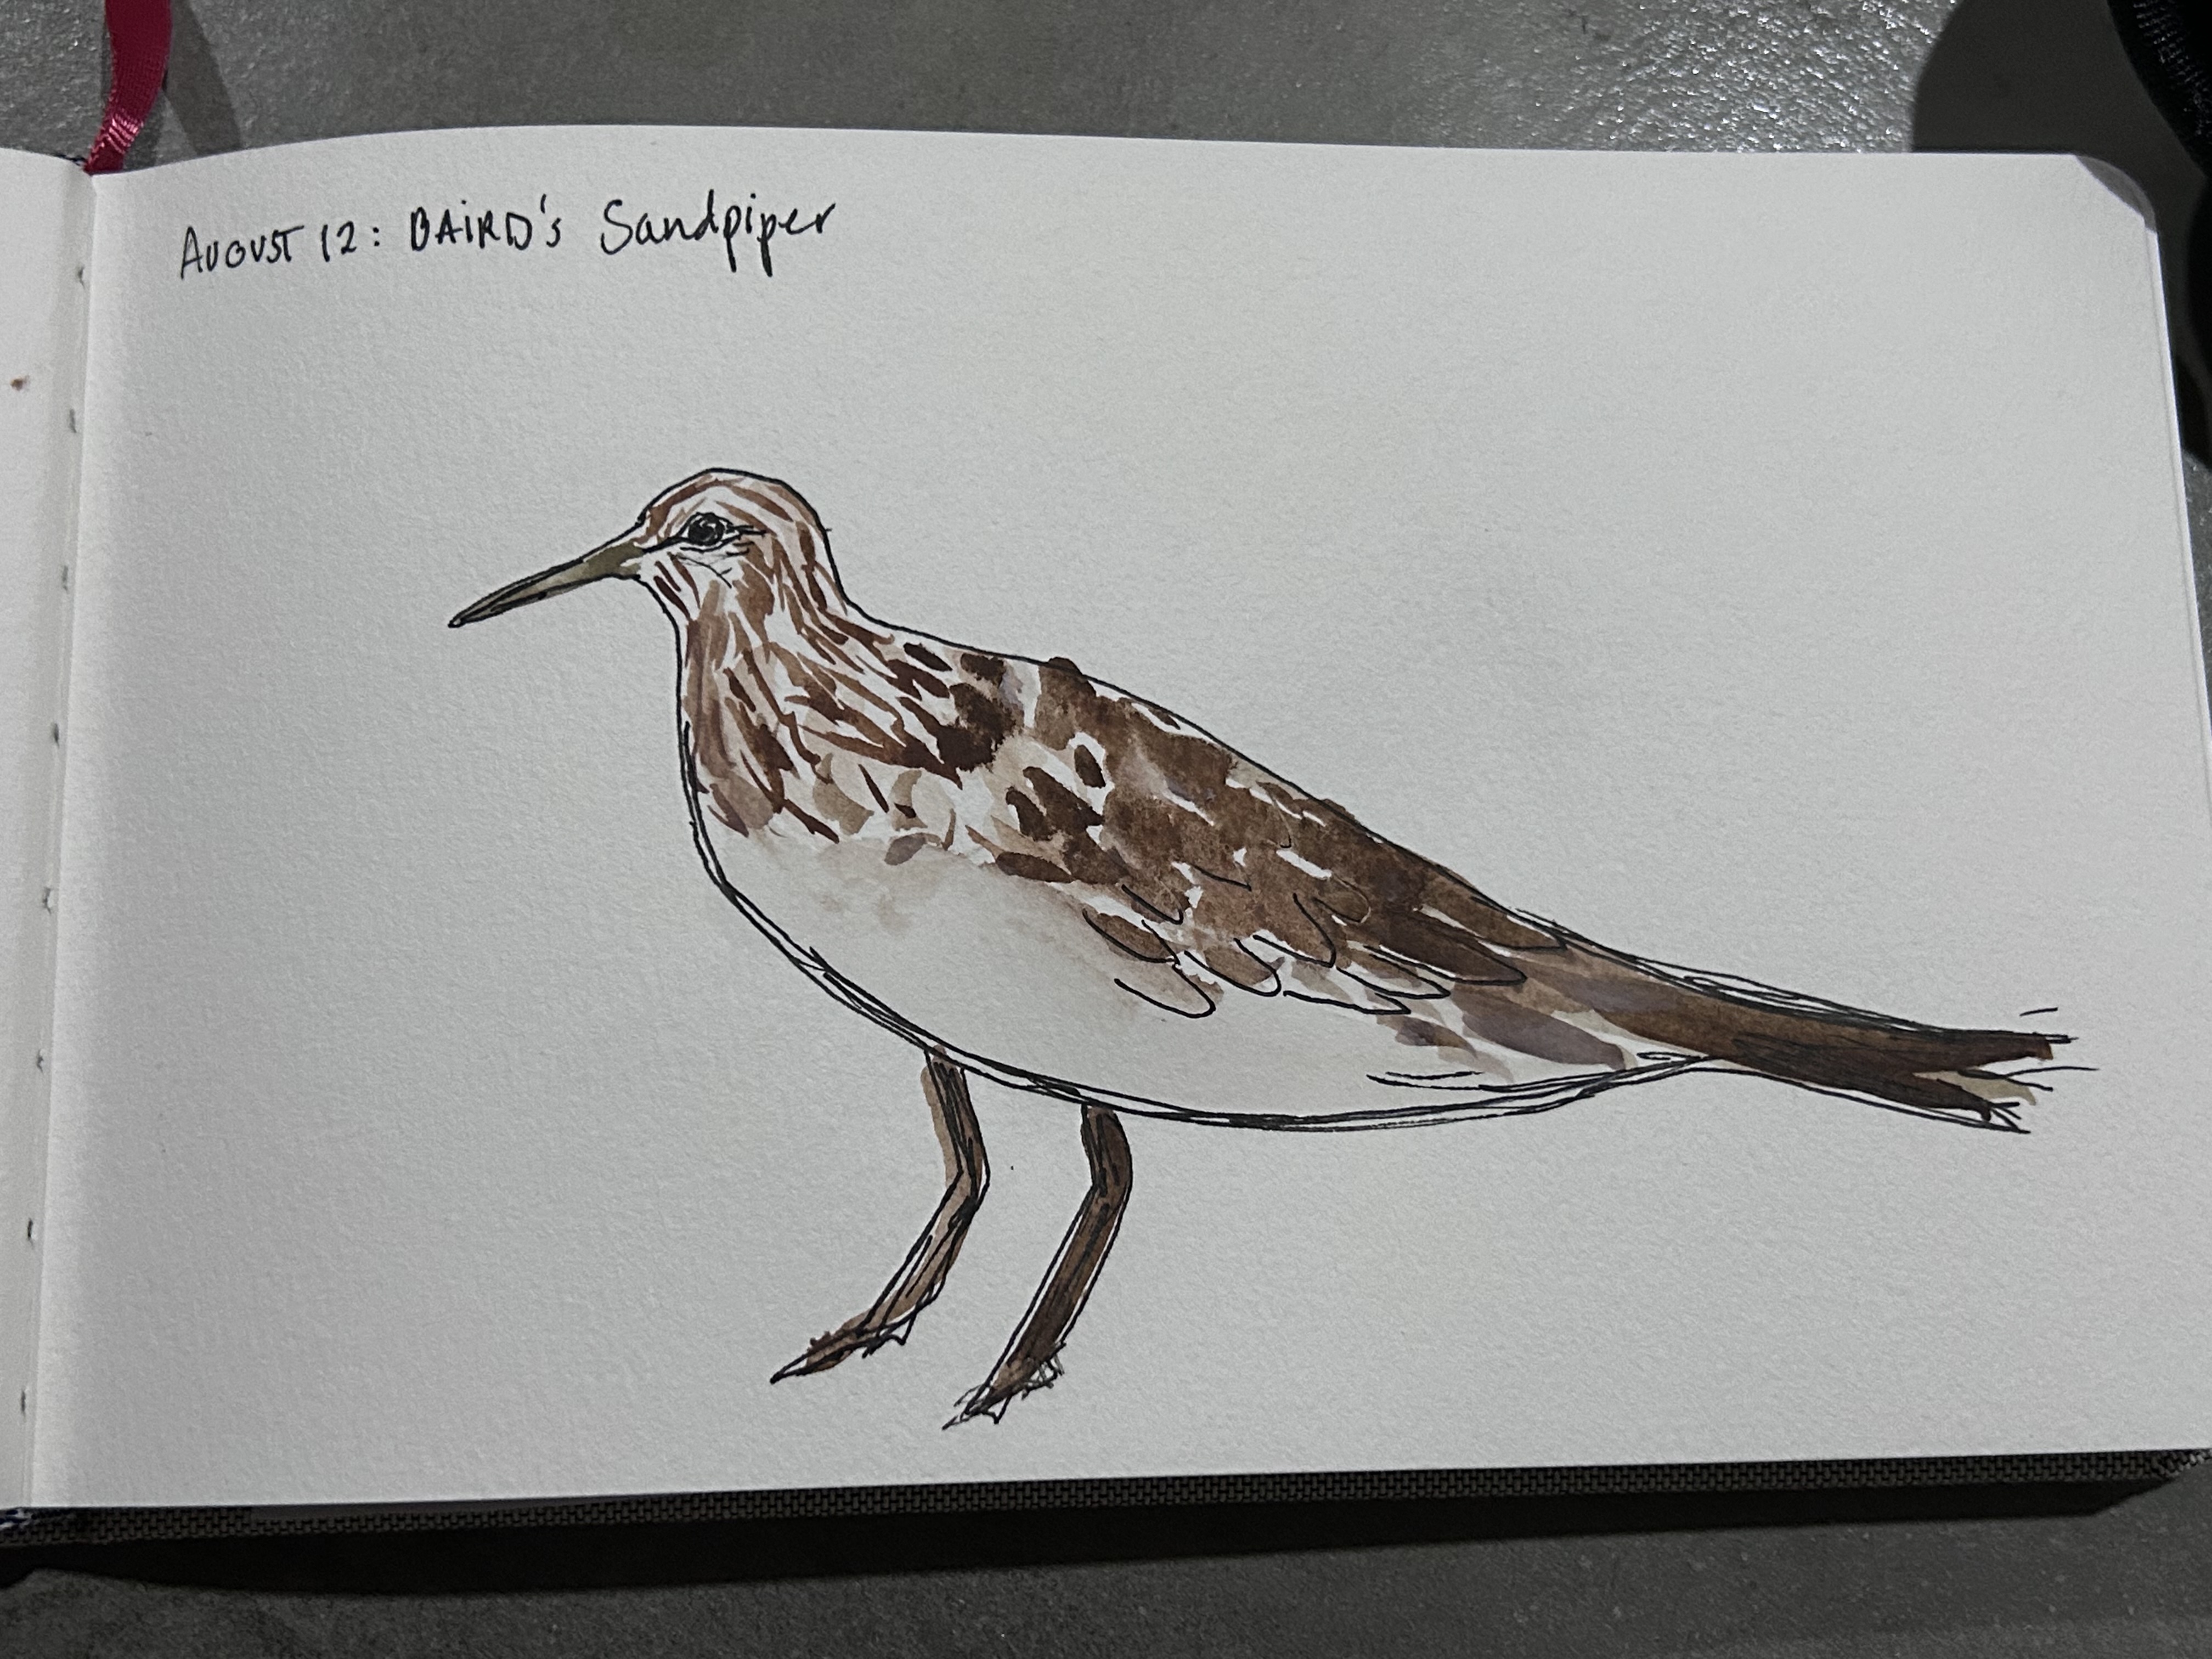 AUGUST 12: BAIRD's Sandpiper